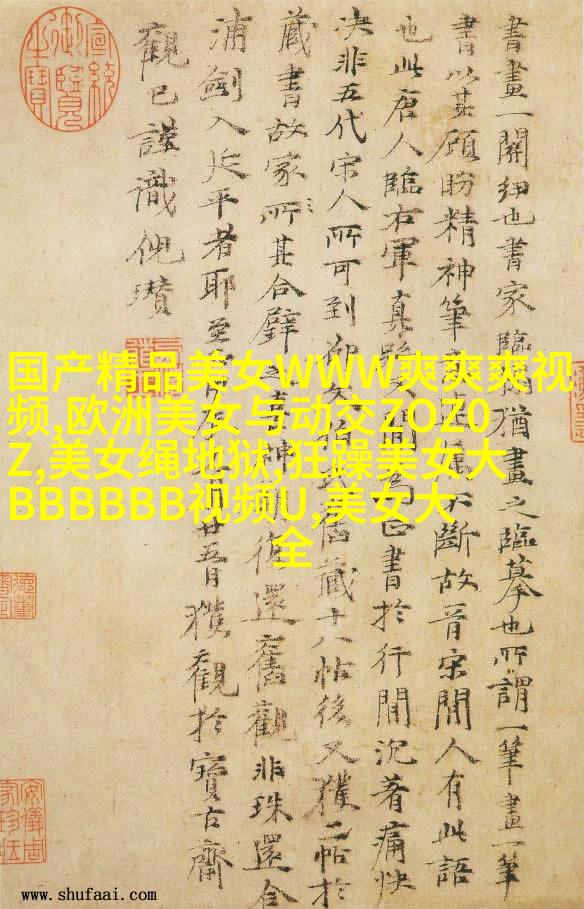 書畫一關紐也書家臨猶畫之臨摹也所謂一筆畫一筆
書以其顧盼精神筆屬不斷故晉宋間人有此語
也此唐人臨右軍真書於行間沉著痛快
決非五代宋人所可到藏十八帖後又獲二帖於
藏書故家所其合璧之神復還舊觀非珠還合
浦劍入延平者耶至廿獲觀於寶古齋
觀已謹識倪瓚
宣統御覽之寶
国产精品美女WWW爽爽爽视
频,欧洲美女与动交ZOZ0
Z,美女绳地狱,狂躁美女大
BBBBBB视频U,美女大
全
安儀周家珍藏
www.shufaai.com